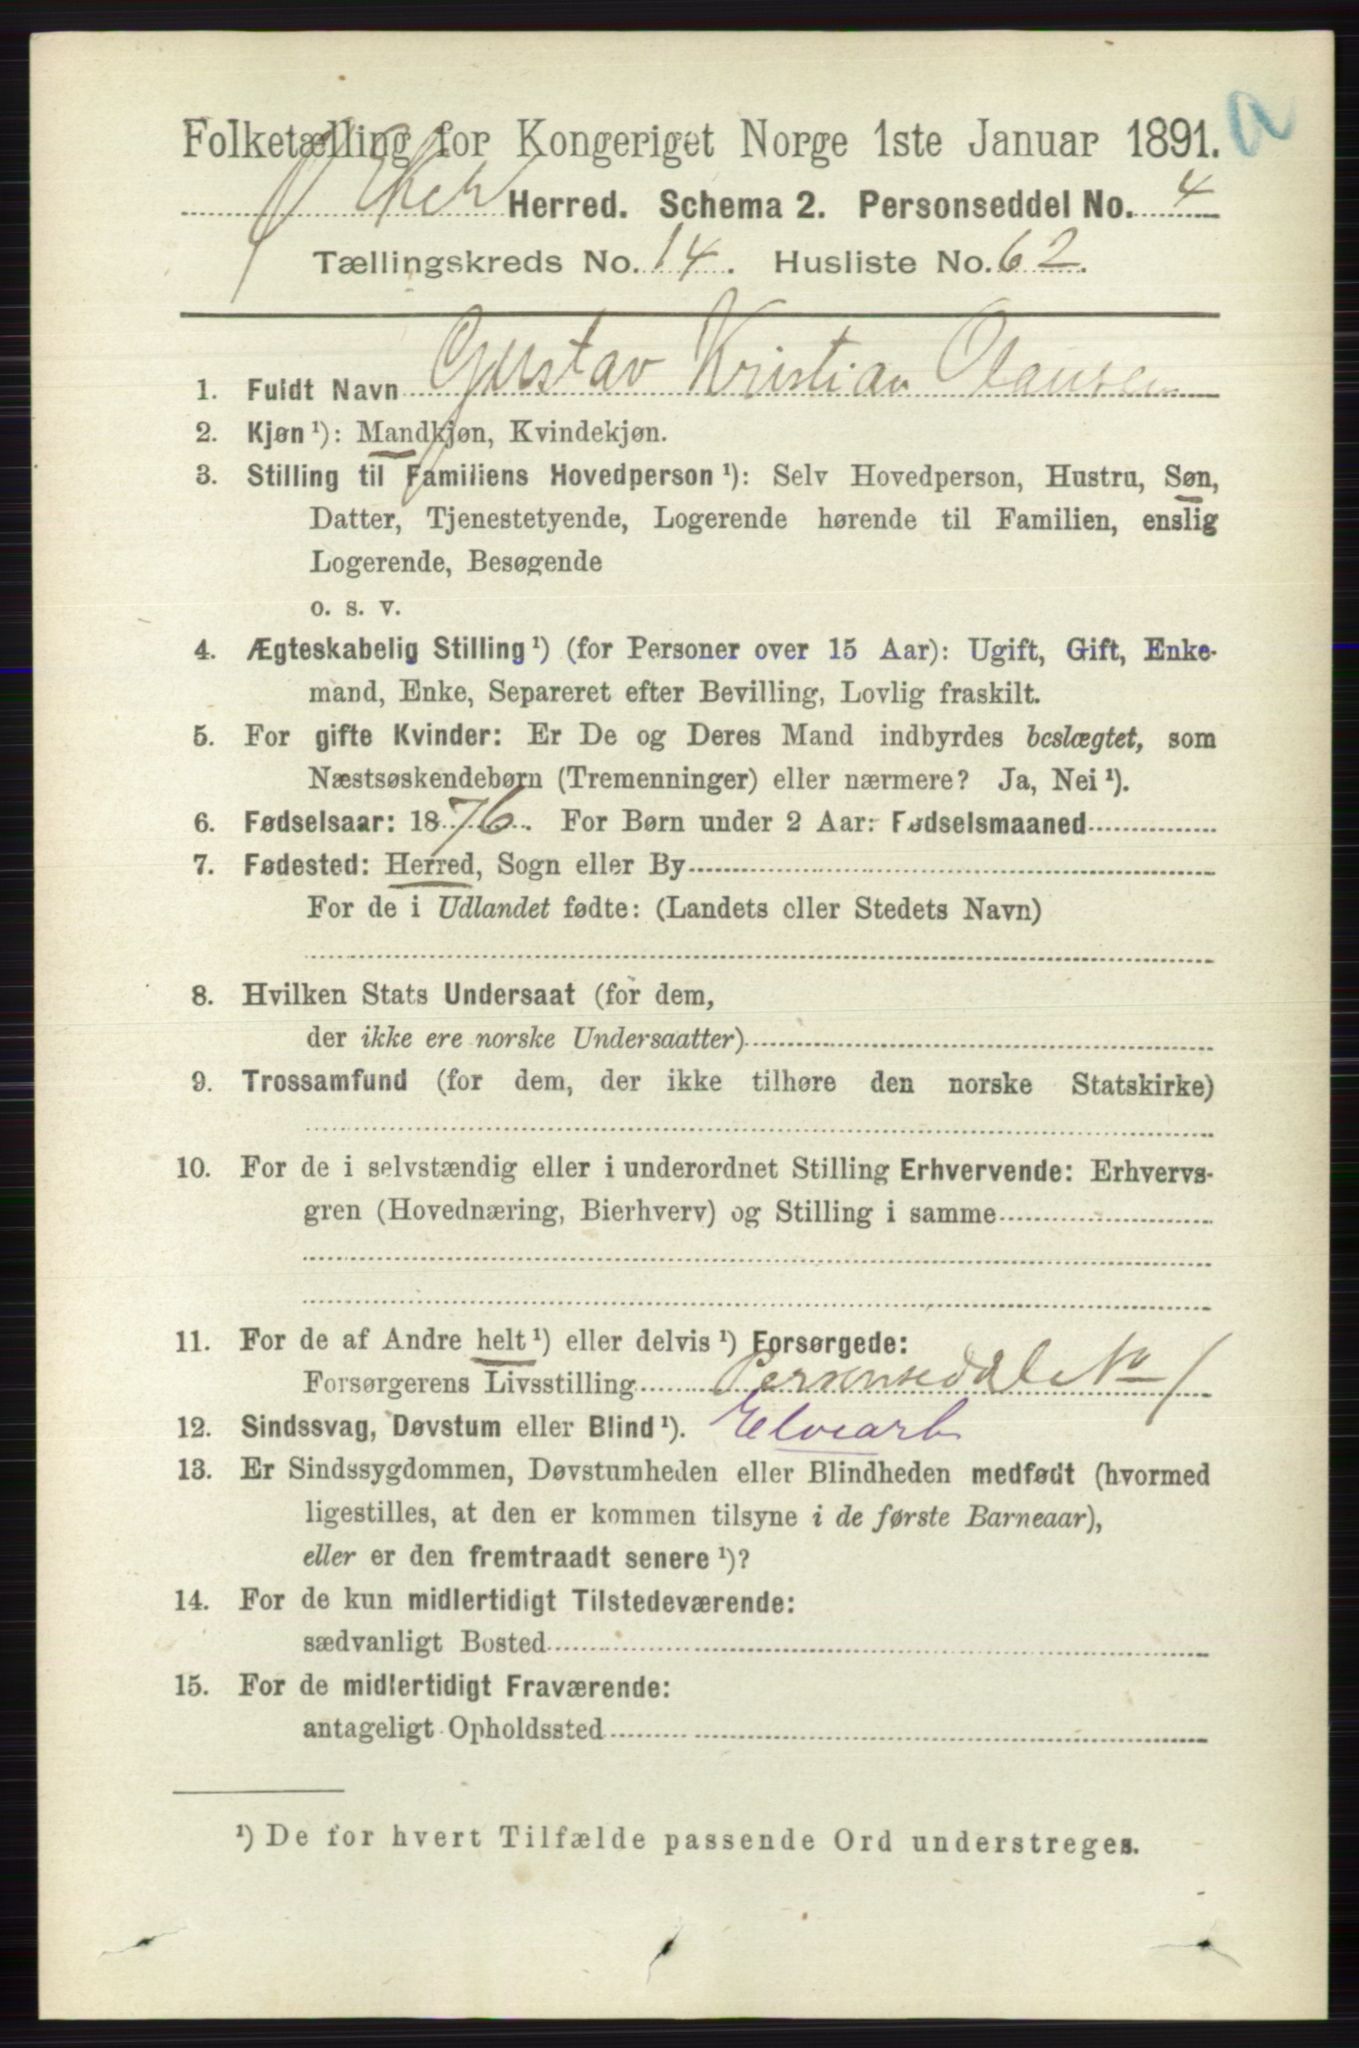 a
Folketælling for Kongeriget Norge 1ste Januar 1891.
Eker Herred. Schema 2. Personseddel No. 4
Tællingskreds No. 14. Husliste No. 62.
1. Fuldt Navn Gustav Kristian Clausen
2. Kjøn ¹): Mandkjøn, Kvindekjøn.
3. Stilling til Familiens Hovedperson ¹): Selv Hovedperson, Hustru, Søn,
Datter, Tjenestetyende, Logerende hørende til Familien, enslig
Logerende, Besøgende
o. s. v.
4. Ægteskabelig Stilling ¹) (for Personer over 15 Aar): Ugift, Gift, Enke-
mand, Enke, Separeret efter Bevilling, Lovlig fraskilt.
5. For gifte Kvinder: Er De og Deres Mand indbyrdes beslægtet, som
Næstsøskendebørn (Tremenninger) eller nærmere? Ja, Nei ¹).
6. Fødselsaar: 1876. For Børn under 2 Aar: Fødselsmaaned
7. Fødested: Herred, Sogn eller By
For de i Udlandet fødte: (Landets eller Stedets Navn)
8. Hvilken Stats Undersaat (for dem,
der ikke ere norske Undersaatter)
9. Trossamfund (for dem, der ikke tilhøre den norske Statskirke)
10. For de i selvstændig eller i underordnet Stilling Erhvervende: Erhvervs-
gren (Hovednæring, Bierhverv) og Stilling i samme
11. For de af Andre helt ¹) eller delvis ¹) Forsørgede:
Forsørgerens Livsstilling Personseddel No 1
12. Sindssvag, Døvstum eller Blind ¹). Elvearb
13. Er Sindssygdommen, Døvstumheden eller Blindheden medfødt (hvormed
ligestilles, at den er kommen tilsyne i de første Barneaar),
eller er den fremtraadt senere ¹)?
14. For de kun midlertidigt Tilstedeværende:
sædvanligt Bosted
15. For de midlertidigt Fraværende:
antageligt Opholdssted
¹) De for hvert Tilfælde passende Ord understreges.